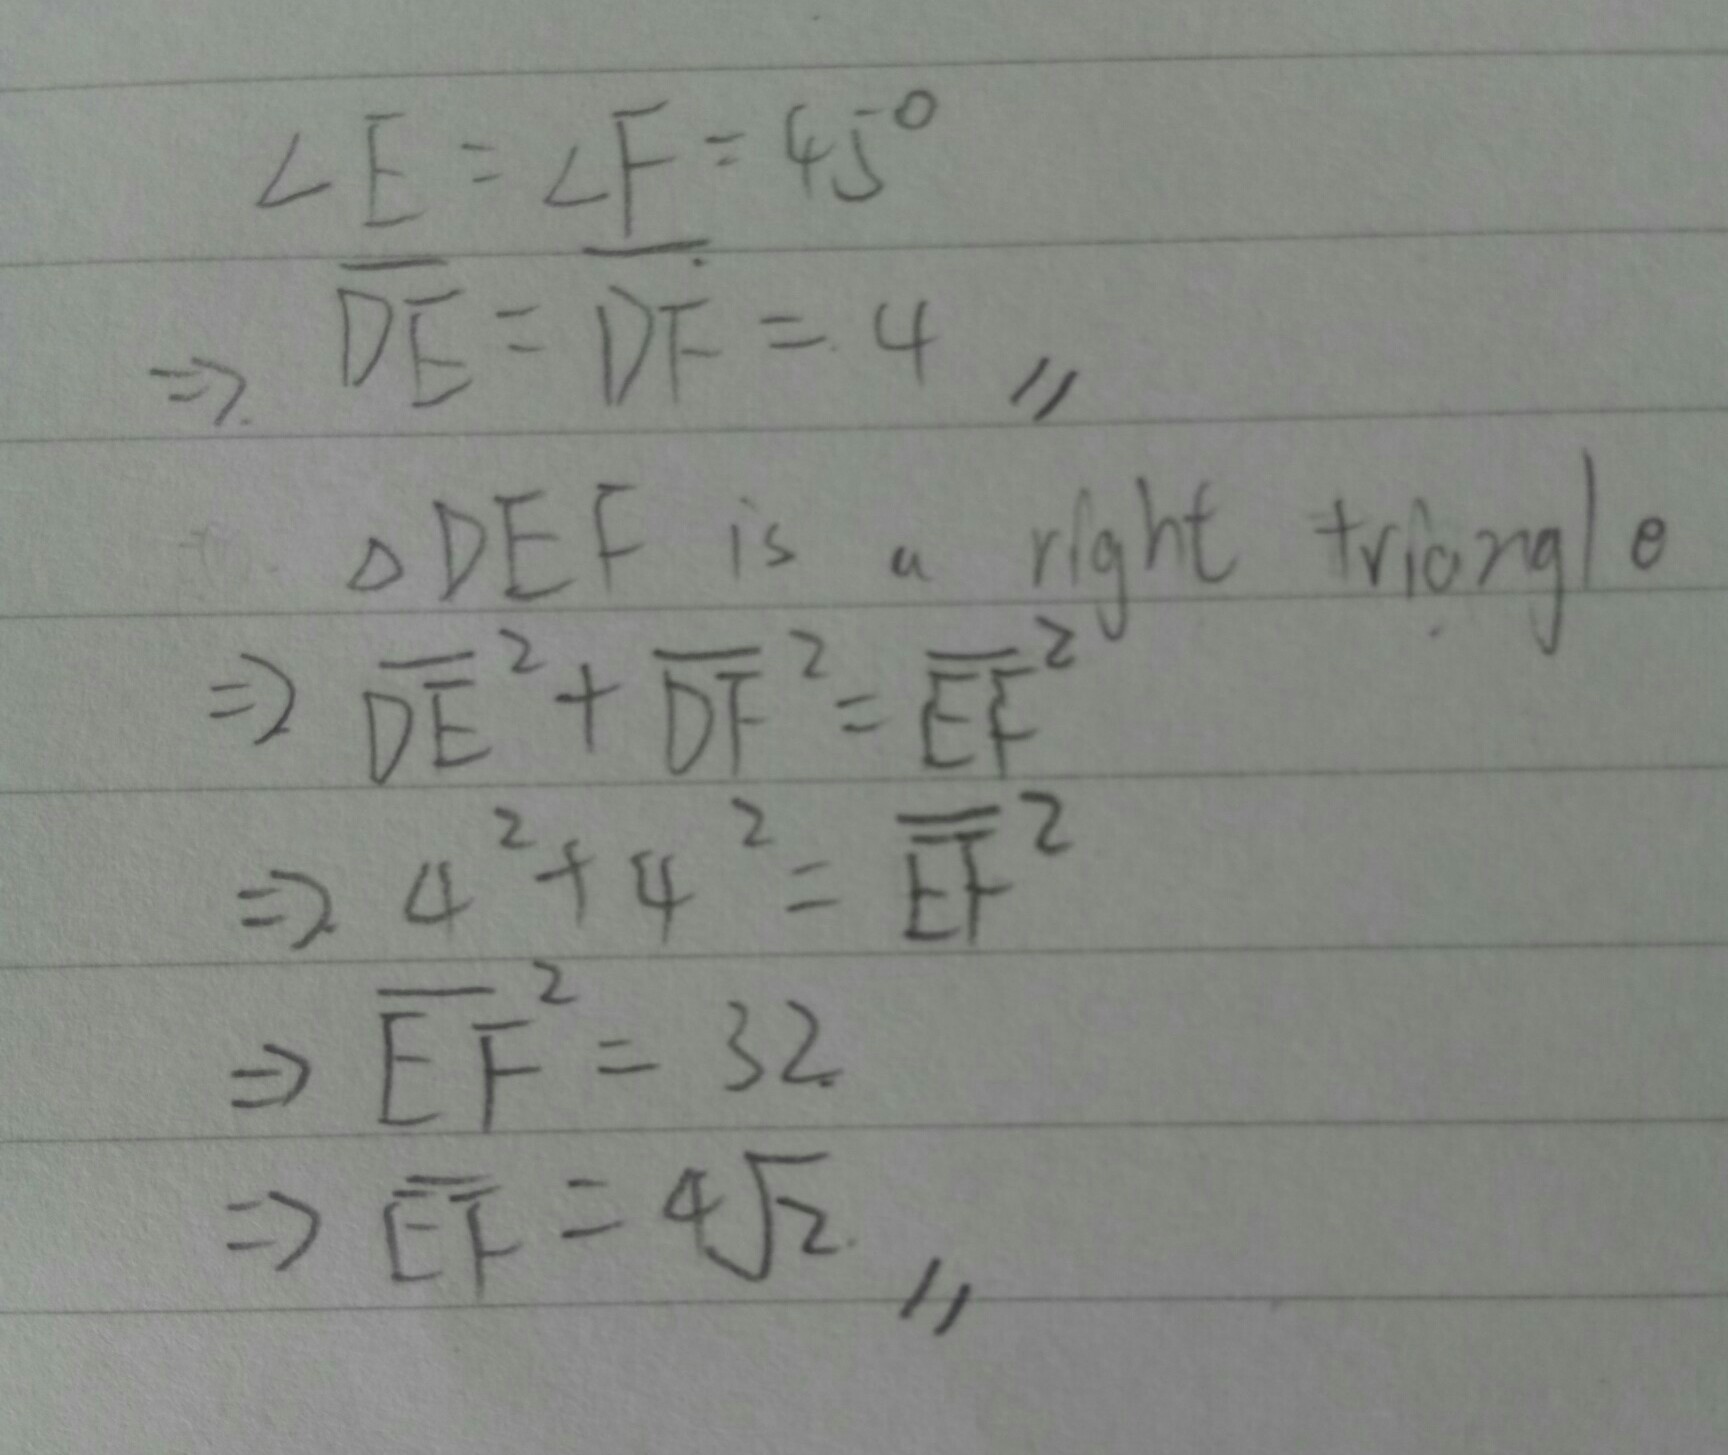 ∠E = ∠F = 45°
⇒ D̅E̅ = D̅F̅ = 4 〃
△DEF is a right triangle
⇒ D̅E̅² + D̅F̅² = E̅F̅²
⇒ 4² + 4² = E̅F̅²
⇒ E̅F̅² = 32
⇒ E̅F̅ = 4√2 〃